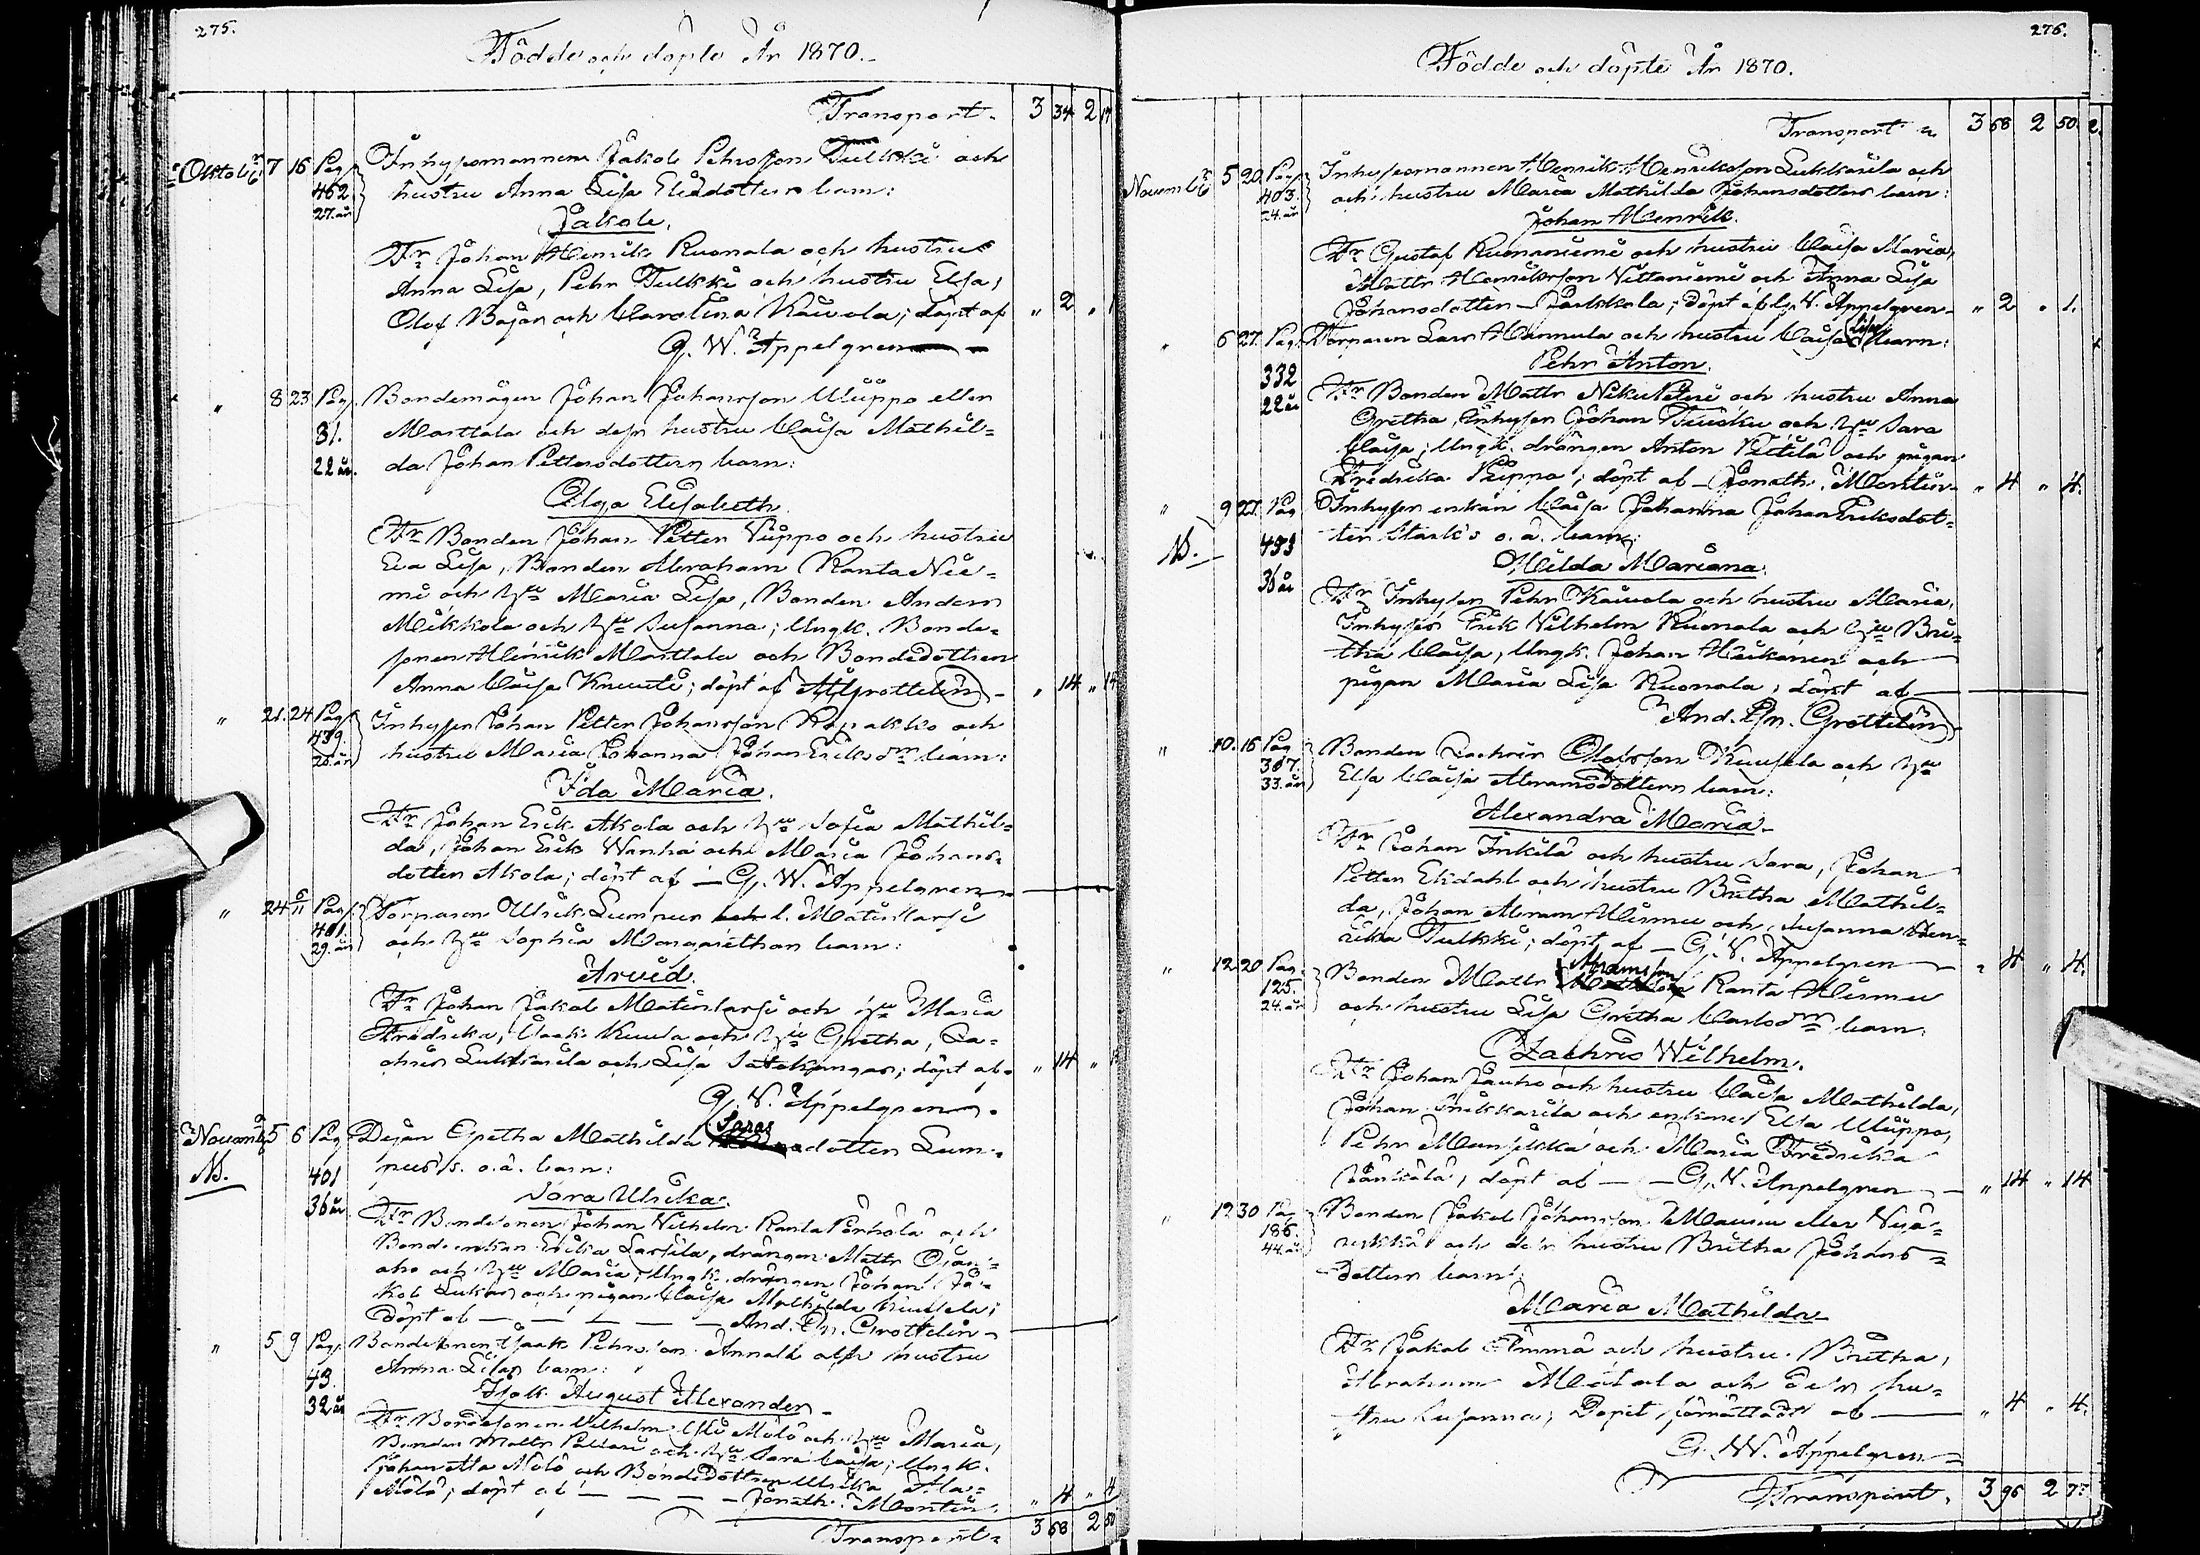 275.
Födde och döpte År 1870.
Transport. 3 34 2
Oktob. 7 16 Pag. Inhysesmannen Jakob Pehrsson Tulkki och
462 hustru Anna Lisa Eliædotters barn:
27. år
Jakob.
Fr Johan Henrik Ruonala och hustru
Anna Lisa, Pehr Tulkki och hustru Elsa,
Olof Bajar och Carolina Kauvola; döpt af " 2 " 1
G. W. Appelgren
" 8 23 Pag. Bondemågen Johan Johansson Uluppo eller
31. Marttala och dess hustru Caisa Mathil=
22 år. da Johan Pettersdotters barn:
Olga Elisabeth.
Fr Bonden Johan Petter Vuppo och hustru
Eva Lisa, Bonden Abraham Ranta Nie=
mi och Hu Maria Lisa, Bonden Anders
Mikkola och Hu Susanna; Ungk. Bonde=
sonen Henrik Marttala och Bondedottren
Anna Caisa Knuuti; döpt af A. Grottelin - " 14 " 14
" 21. 24 Pag. Inhysen Johan Petter Johansson Ropakko och
439 hustru Maria Johanna Johan Eriksdrs barn:
25. år
Ida Maria.
Fr Johan Erik Akola och Hu Sofia Mathil=
da, Johan Erik Wanha och Maria Johans-
dotter Akola; döpt af - G. W. Appelgren
" 24 6/11 Pag. Torparen Ulrik Lumpus l. Matinlassi
401. och Hu Sophia Margarethas barn:
29. år
Arvid.
Fr Johan Jakob Matinlassi och Hu Maria
Fredrika, Isak Kuula och Hu Gretha, Za=
chris Lukkarila och Lisa Satokangas; döpt af " 14 "
G. W. Appelgren.
Novemb. 5 6 Pag. Pigan Gretha Mathilda Saras dotter Lum=
N. 401 pus's o. ä. barn:
36 år
Sara Ulrika.
Fr Bondesonen Johan Wilhelm Ranta Pörhölä och
Bondeenkan Erika Lassila, drängen Matts Ojan=
aho och Hu Maria; Ungk. drängen Johan Ja=
kob Lukkar och pigan Caisa Mathilda
döpt af — — — — And. Joh. Grottelin -
" 5 9 Pag. Bondesonen Isaak Pehrsson Annala och hustru
43. Anna Lisas barn:
32 år
Isak August Alexander -
Fr Bondesonen Wilhelm Ylö Mölö och Hu Maria,
Bonden Matts Pallari och Hu Sara Caisa; Ungk.
Johan Ala Mölö och Bondedottren Ulrika Ala=
Mölö; döpt af — — — - Jonath. Montin. " 4 " 4
Transport - 3 58 2 50
276.
Födde och döpte År 1870.
Transport 3 58 2 50. 2.
Novemb. 5 20. Pag. Inhysesmannen Henrik Henriksson Lukkarila och
403. och hustru Maria Mathilda Johansdotters barn:
24. år
Johan Henrik.
Fr Gustaf Rumpuniemi och hustru Caisa Maria,
Matts Henriksson Vittaniemi och Anna Lisa
Johansdotter - Parkkola; döpt af G. W. Appelgren - " 2 " 1.
" 6 27. Pag. Torparen Lars Hannula och hustru Caisa Lisas barn:
332 Pehr Anton.
22 år Fr Bonden Matts NikuPeteri och hustru Anna
Gretha, Inhysen Johan Tuisku och Hu Sara
Caisa; Ungk. drängen Anton Pietilä och pigan
Fredrika Piippo; döpt af - Jonath. Montin - " 4 " 4.
" 9 27. Pag. Inhyses enkan Caisa Johanna Johan Eriksdot=
N. - 453 ter Stark's o. ä. barn:
36 år Hilda Mariana.
Fr Inhysen Pehr Kauvola och hustru Maria,
Inhyses Erik Wilhelm Ruonala och Hu Bri=
tha Caisa, Ungk. Johan Heikanen och
pigan Maria Lisa Ruonala; döpt af —
And. Joh. Grottelin
" 10. 16 Pag. Bonden Zachris Olofsson Kuusela och Hu
367. Elsa Caisa Abramsdotters barn:
33. år
Alexandra Maria -
Fr Johan Inkilä och hustru Sara, Johan
Petter Ekdahl och hustru Britha Mathil=
da, Johan Abram Hermu och Susanna Hen=
rika Tulkki; döpt af - G. W. Appelgren - " 4 " 4.
" 12 20 Pag. Bonden Matts Abramsson Ranta Hermu
125. och hustru Lisa Gretha Carlsdrs barn:
24. år
Zachris Wilhelm.
Fr Johan Jauho och hustru Caisa Mathilda,
Johan Inkkarila och enkan Elsa Uluppo,
Pehr Mansikka och Maria Fredrika
; döpt af - - G. W. Appelgren - " 14 " 14
" 12 30 Pag. Bonden Jakob Johansson Maunu eller Nygå=
186. och dess hustru Britha Johans=
44. år dotters barn:
Maria Mathilda -
Fr Jakob Ämmä och hustru Britha,
Abraham Matala och dess hu=
stru Susanna; Dopet förrättadt af — " 4 " 4.
G. W. Appelgren -
Transport. 3 96 2 73